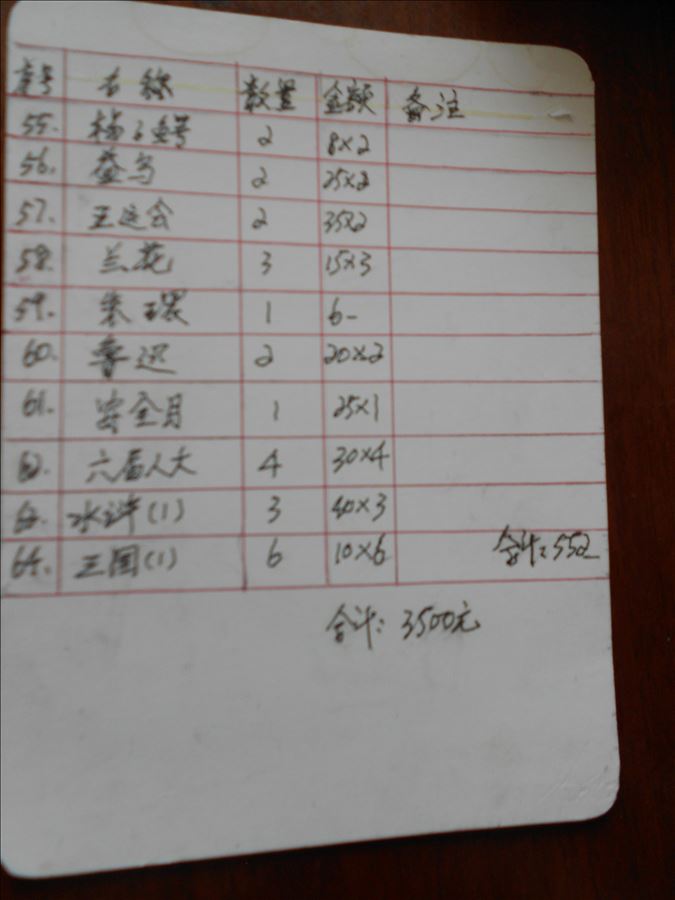 序号 名称 数量 金额 备注
55. 2 8×2
56. 益鸟 2 25×2
57. 五运会 2 35×2
58. 兰花 3 15×3
59. 朱环 1 6-
60. 鲁迅 2 20×2
61. 安全月 1 25×1
62. 六届人大 4 30×4
63. 水浒(1) 3 40×3
64. 三国(1) 6 10×6 合计:552
合计:3500元